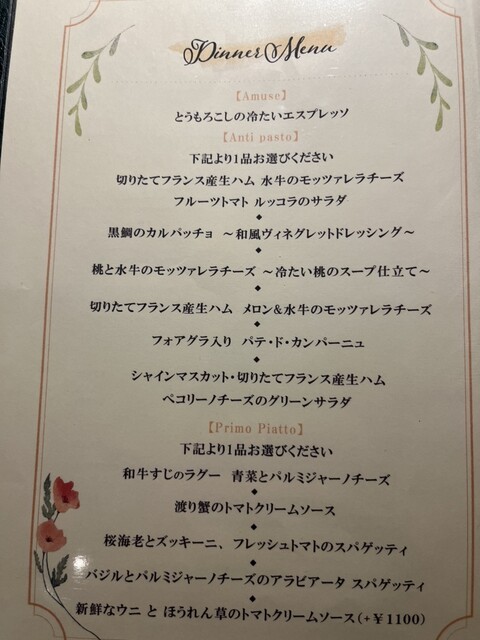 Dinner Menu
【Amuse】
とうもろこしの冷たいエスプレッソ
【Anti pasto】
下記より1品お選びください
切りたてフランス産生ハム 水牛のモッツァレラチーズ
フルーツトマト ルッコラのサラダ
◆
黒鯛のカルパッチョ ～和風ヴィネグレットドレッシング～
◆
桃と水牛のモッツァレラチーズ ～冷たい桃のスープ仕立て～
◆
切りたてフランス産生ハム メロン&水牛のモッツァレラチーズ
◆
フォアグラ入り パテ・ド・カンパーニュ
◆
シャインマスカット・切りたてフランス産生ハム
ペコリーノチーズのグリーンサラダ
【Primo Piatto】
下記より1品お選びください
和牛すじのラグー 青菜とパルミジャーノチーズ
◆
渡り蟹のトマトクリームソース
◆
桜海老とズッキーニ、フレッシュトマトのスパゲッティ
◆
バジルとパルミジャーノチーズのアラビアータ スパゲッティ
◆
新鮮なウニ と ほうれん草のトマトクリームソース(+￥1100)